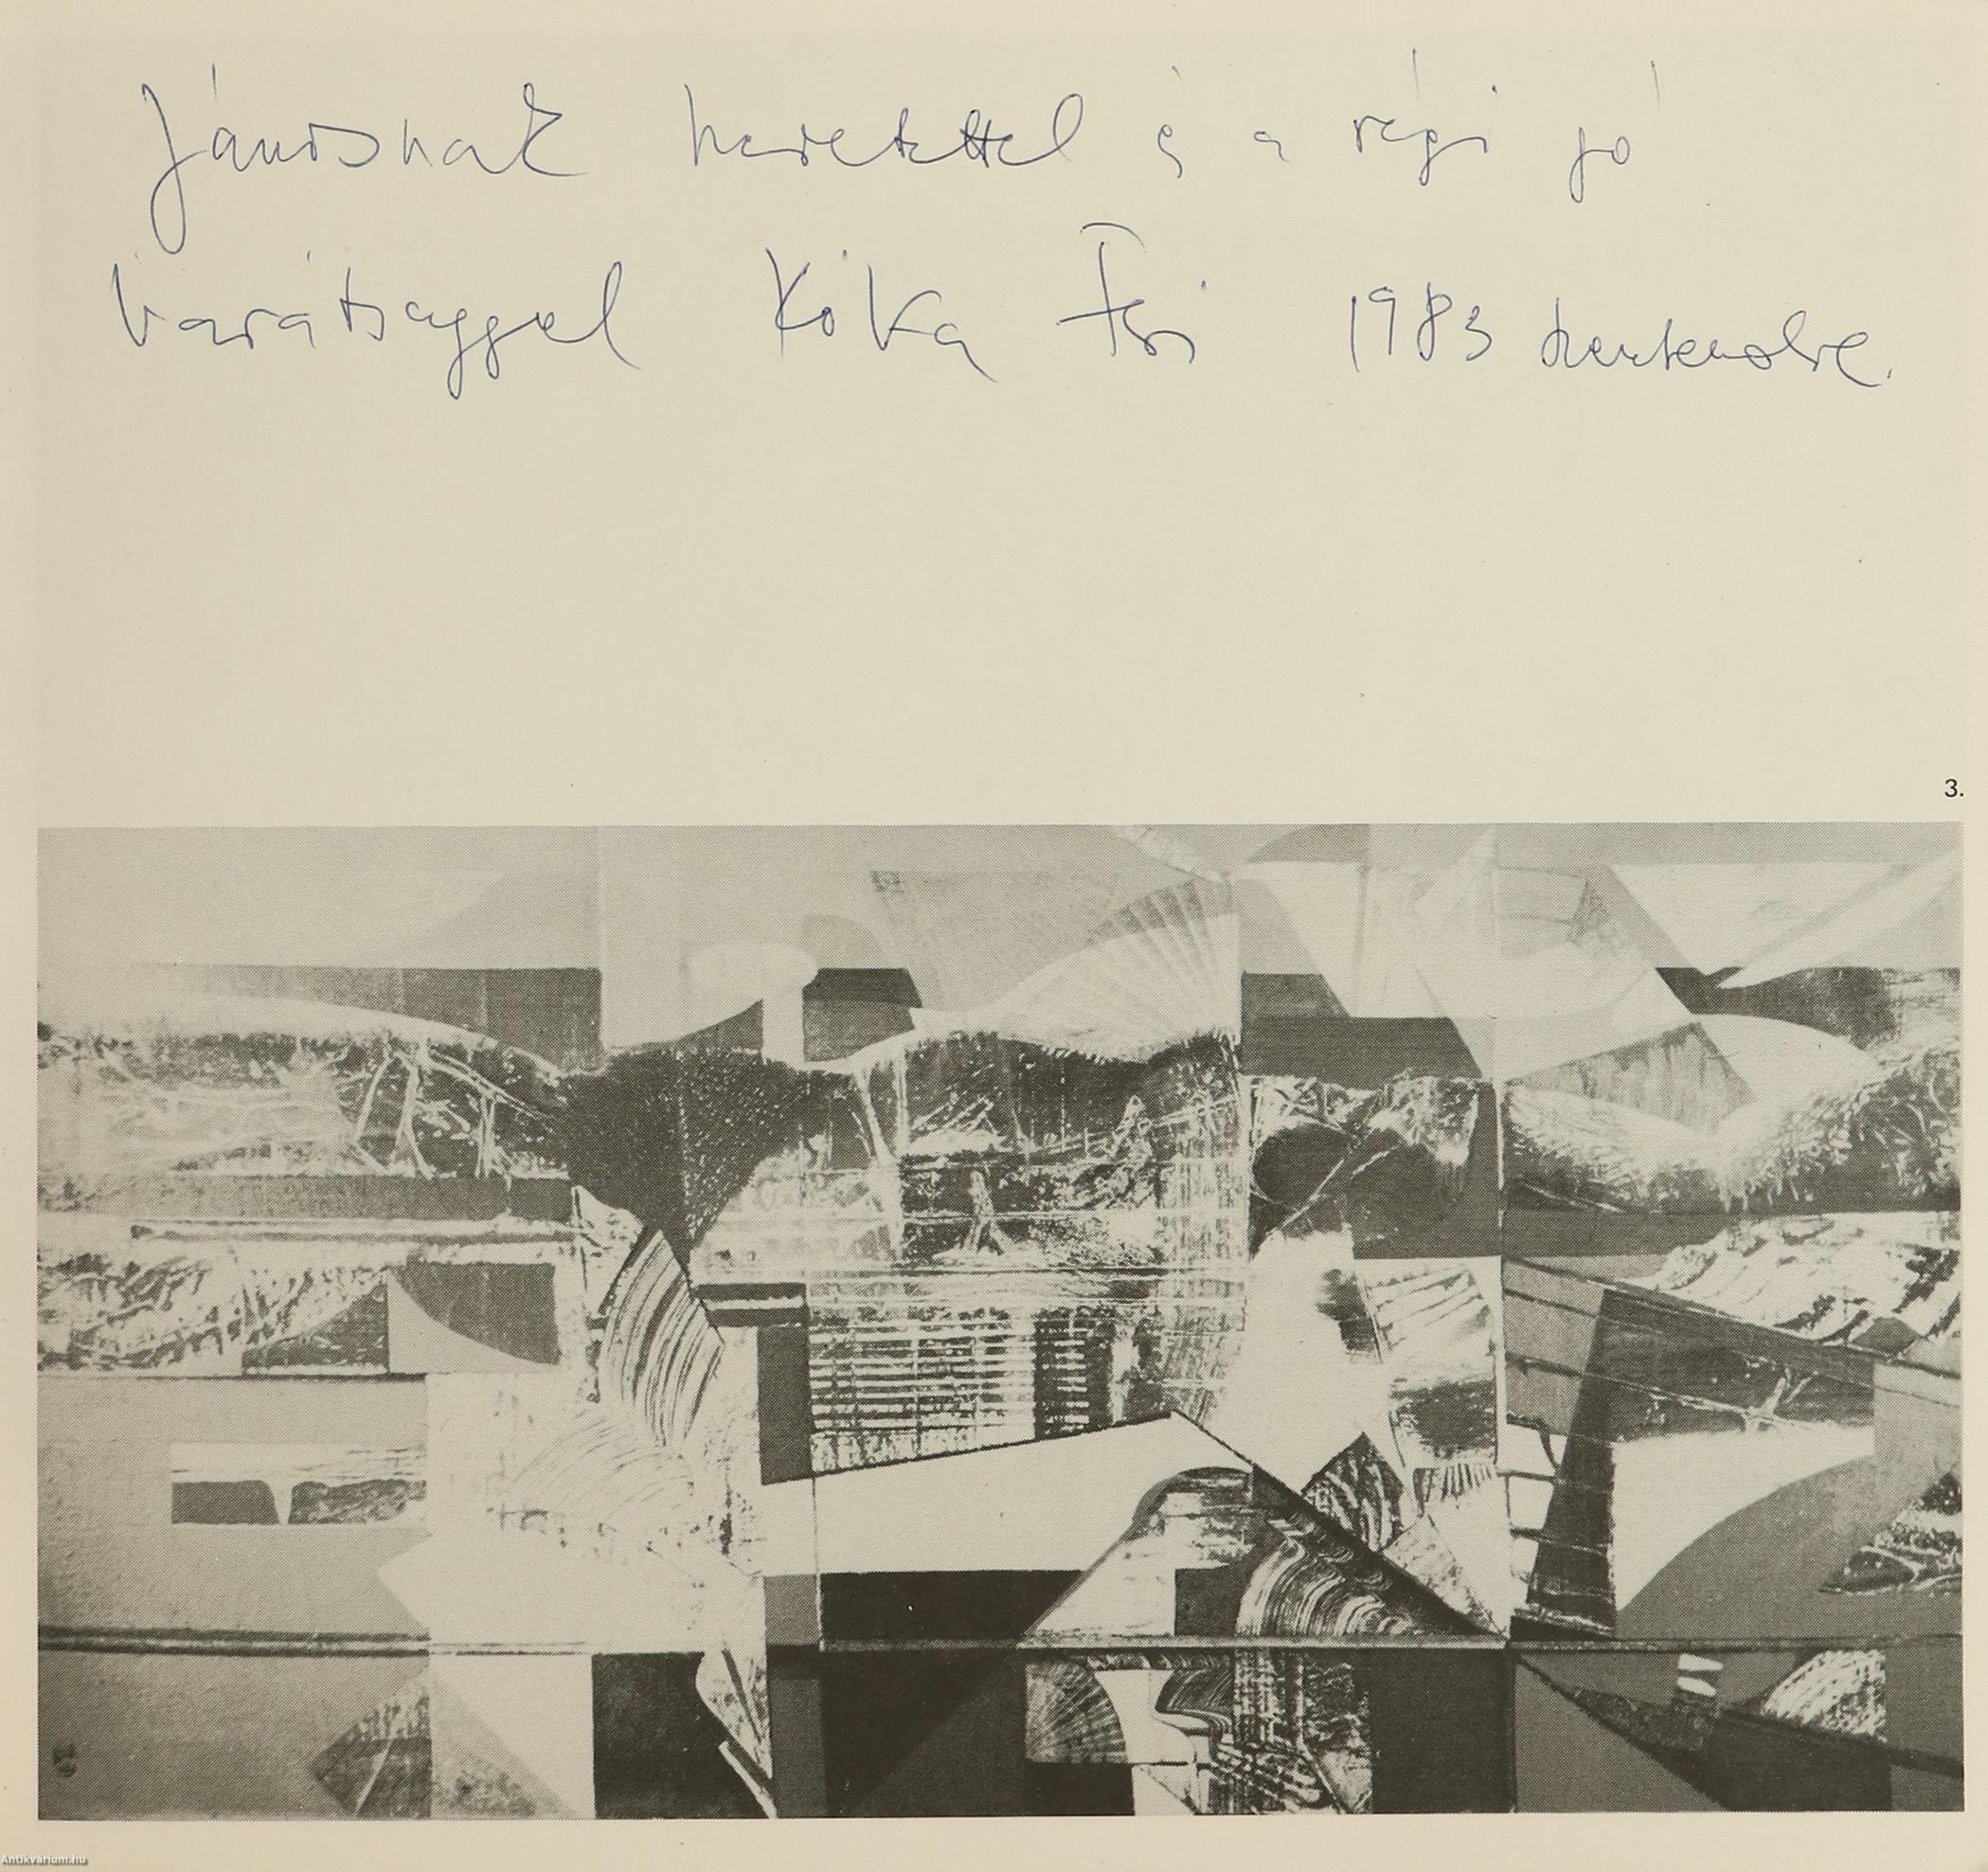 Jánosnak szeretettel és a régi jó
barátsággal Kóka Feri 1983 Szentendre.
3.
Antikvárium.hu